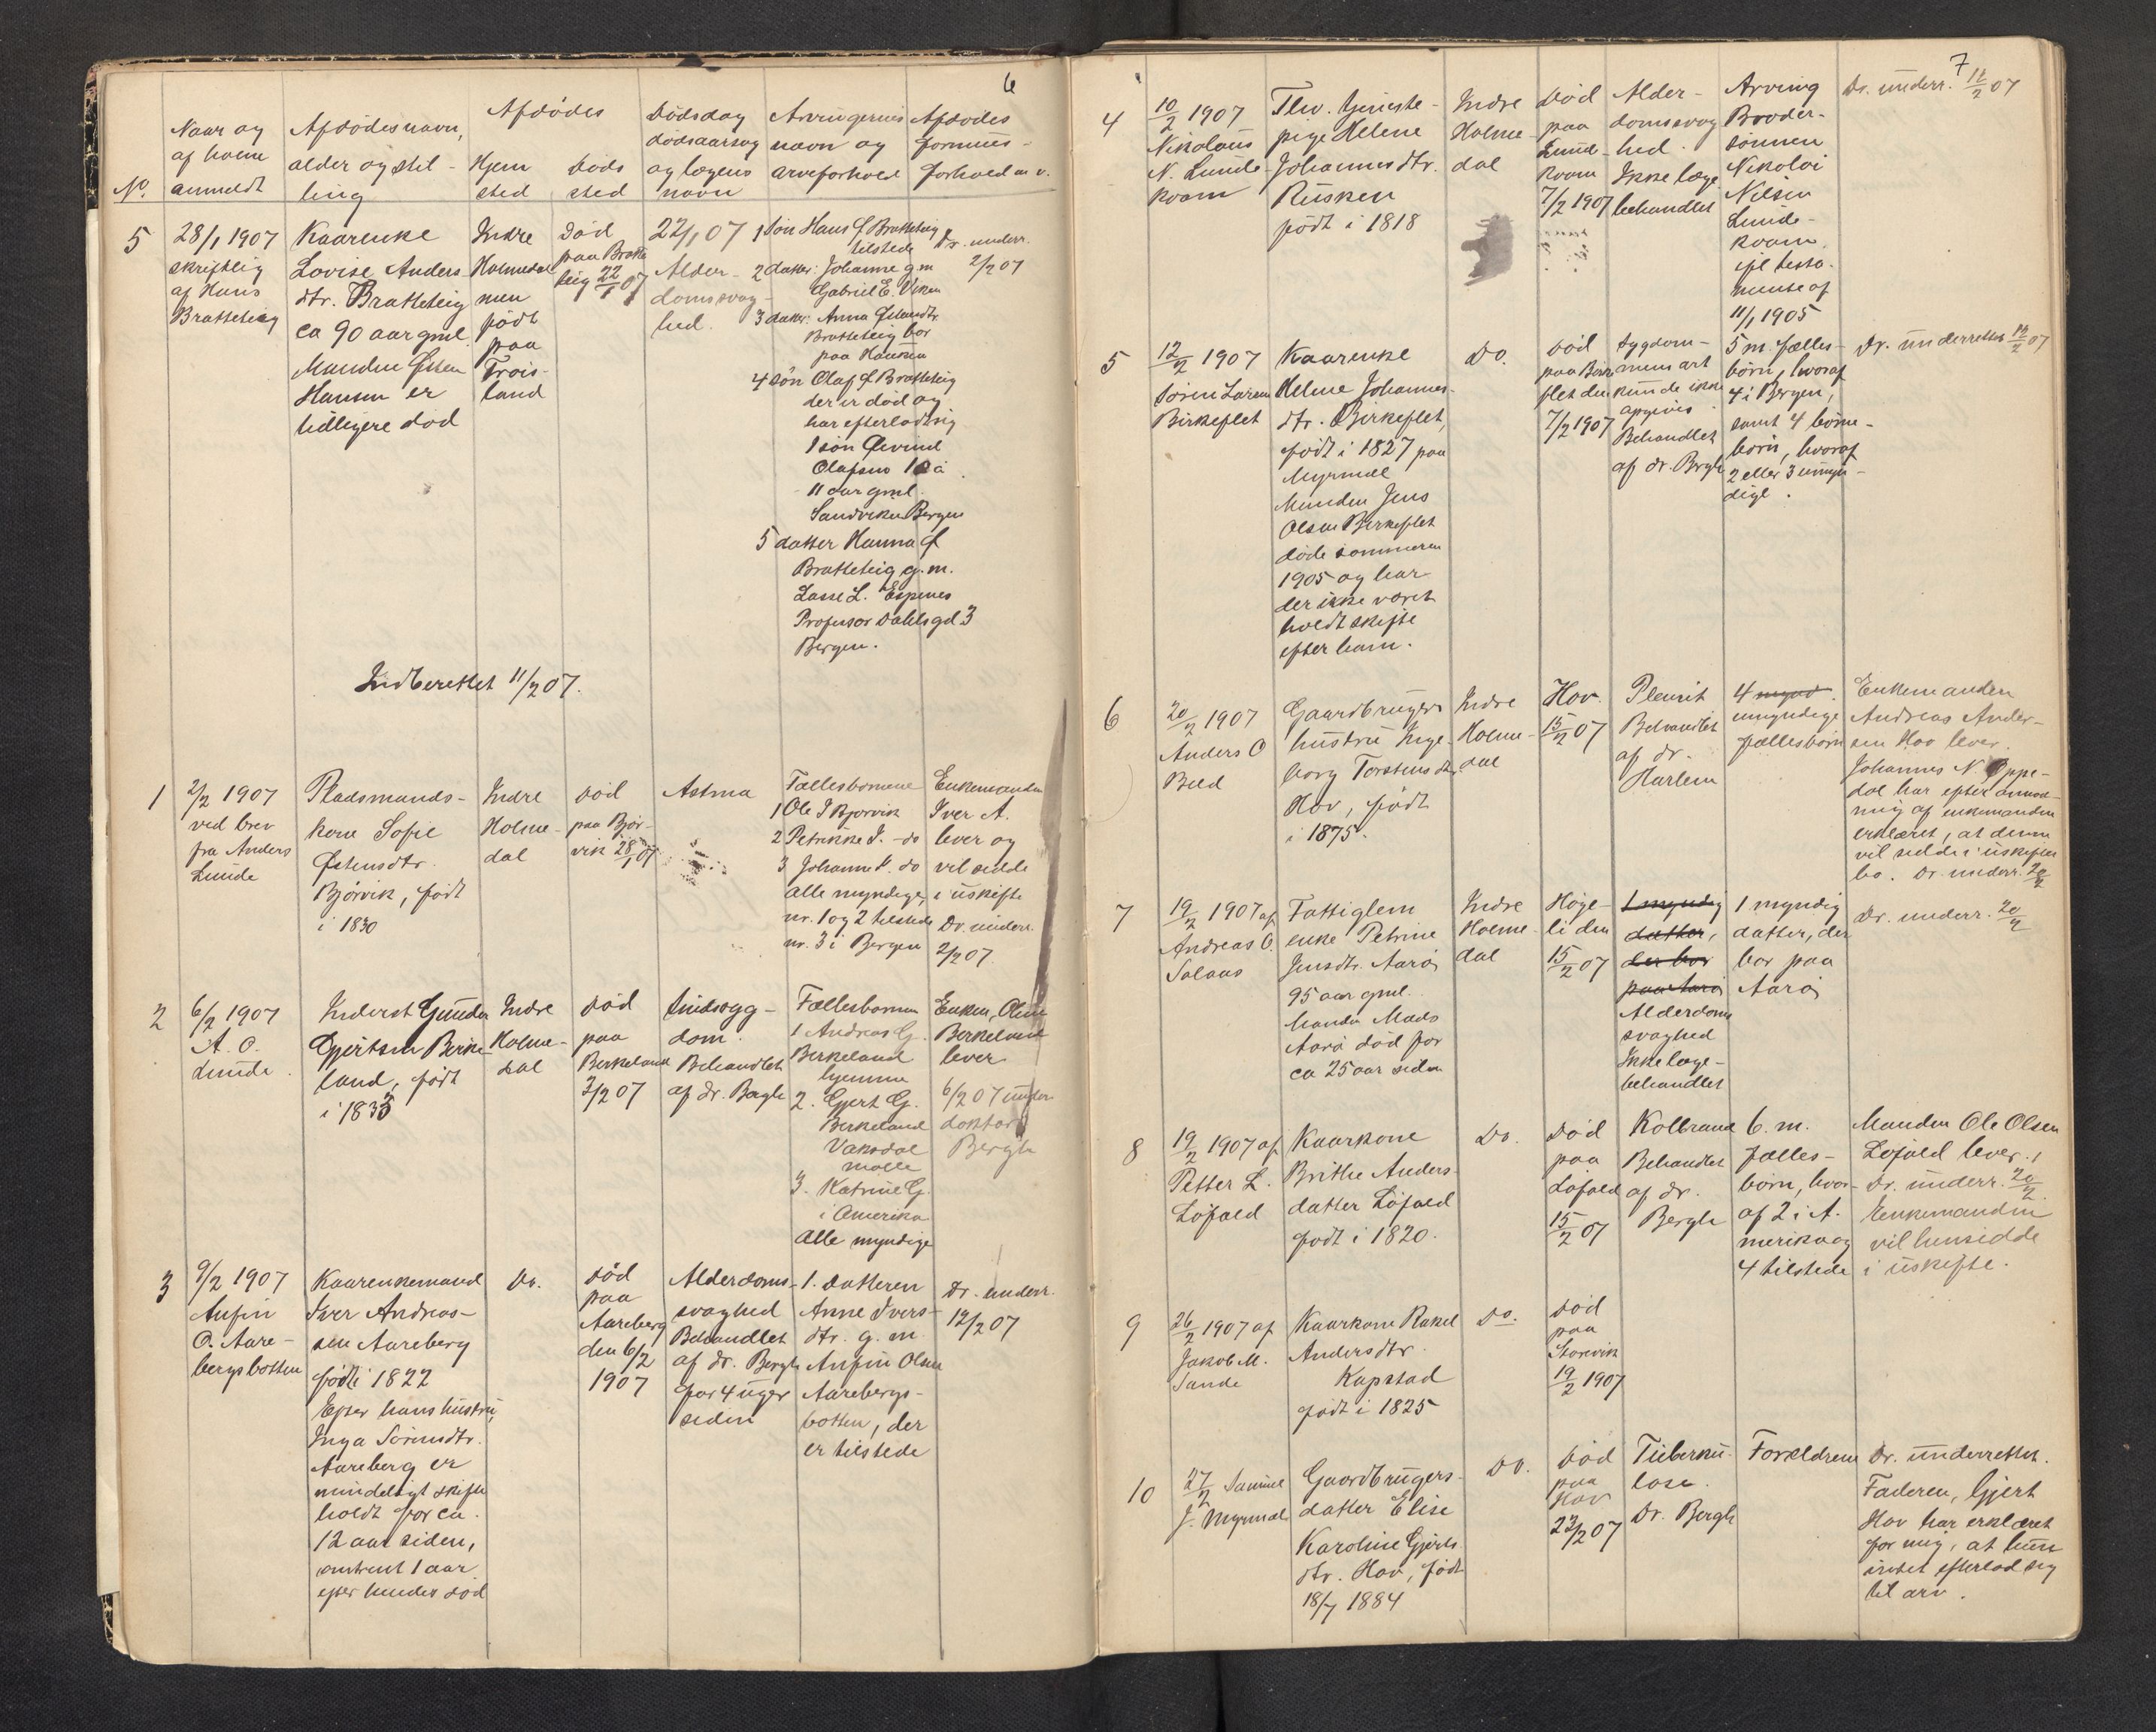 6
Afdødes
Naar og
af hvem
anmeldt
No.
Afdødes navn,
alder og stil-
ling
Hjem
sted
Døds
sted
Dødsdag
dødsaarsag
og lægens
navn
Arvingernes
navn og
arveforhold
Afdødes
formues-
forhold m v.
5
28/1 1907
skriftlig
af Hans
Bratteteig
Kaarenke
Lovise Anders
dtr. Bratteteig
ca 90 aar gml.
Manden Østen
Hansen er
tidligere død
Indre
Holmedal
men
født
paa
Frois-
land
Død
paa Bratte
teig 22/1 07
22/1 07
Alder-
domssvag-
hed.
1 Søn Hans Ø Bratteteig
tilstede
2 datter: Johanne g m
Gabriel E. Viken
3 datter: Anna Østensdtr
Bratteteig bor
paa Hausen
4 søn Olaf Ø Bratteteig
der er død og
har efterladt sig
1 søn Øivind
Olafsen 10 à
11 aar gml.
Sandviken Bergen
5 datter Hanna Ø
Bratteteig g. m.
Lasse L. Espenes
Professor Dahls gd 3
Bergen.
Dr. underr.
2/2 07
Indberettet 11/2 07.
1
2/2 1907
ved brev
fra Anders
Lunde
Pladsmands-
kone Sofie
Østensdtr.
Bjørvik, født
i 1830
Indre
Holme-
dal
Død
paa Bjør-
vik 28/1 07
Astma
Fællesbørnene
1 Ole I Bjørvik
2 Petrikke I. do
3 Johanne I. do
alle myndige,
nr. 1 og 2 tilstede
nr. 3 i Bergen
Enkemanden
Iver A.
lever og
vil sidde
i uskifte
Dr. underr.
2/2 07.
2
6/2 1907
A. O.
Lunde
Inderst Gunder
Gjertsen Birke-
land, født
i 1835
Indre
Holme-
dal
Død
paa
Berkeland
3/2 07
Sindssyg-
dom.
Behandlet
af dr. Bergh
Fællesbørnen
1 Andreas G.
Berkeland
hjemme
2. Gjert G.
Berkeland
Vaksdal
mølle
3. Katrine G.
i Amerika
Alle myndige
Enken, Oline
Berkeland
lever
6/2 07 under
doktor
Bergh
3
9/2 1907
Anfin
O. Aare-
bergsbotten
Kaarenkemand
Iver Andreas-
sen Aareberg
født i 1822
Efter hans hustru,
Inga Sørensdtr.
Aareberg er
mindeligt skifte
holdt for ca.
12 aar siden,
omtrent 1 aar
efter hendes død
Do.
Død
paa
Aareberg
den 6/2
1907
Alderdoms-
svaghed
Behandlet
af dr. Bergh
for 4 uger
siden
1. Datteren
Anne Ivers-
dtr. g. m.
Anfin Olsen
Aarebergs-
botten, der
er tilstede
Dr. underr.
12/2 07
7
4
10/2 1907
Nikolaus
N. Lunde-
kvam
Flv. tjeneste-
pige Helene
Johannesdtr.
Rusken
født i 1818
Indre
Holme-
dal
Død
paa
Lunde-
kvam
7/2 1907
Alder-
domssvag
hed.
Ikke læge
behandlet
Arving
Broder-
sønnen
Nikolai
Nilsen
Lunde-
kvam,
ifl testa-
mente af
11/1 1905
Dr. underr. 12/2 07
5
12/2 1907
Søren Larsen
Birkeflet
Kaarenke
Helene Johannes-
dtr. Birkeflet,
født i 1827 paa
Myrmel
Manden Jens
Olsen Birkeflet
døde sommeren
1905 og har
der ikke været
holdt skifte
efter ham.
Do.
Død
paa Birke
flet den
7/2 1907
Sygdom-
mens art
kunde ikke
opgives.
Behandlet
af dr. Bergh
5 m. fælles-
børn, hvoraf
4 i Bergen,
samt 4 børne-
børn, hvoraf
2 eller 3 umyn-
dige.
Dr. underrettet 12/2 07
6
20/2 1907
Anders O
Bell
Gaardbrugers
hustru Inge-
borg Torstensdtr.
Hov, født
i 1875.
Indre
Holme-
dal
Hov.
15/2 07
Pleurit
Behandlet
af dr.
Harlem
4 mynd.
umyndige
fællesbørn
Enkemanden
Andreas Ander-
sen Hov lever.
Johannes N. Oppe-
dal har efter anmod-
ning af enkemanden
erklæret, at denne
vil sidde i uskiftet
bo. Dr. underr. 20/2
7
19/2 1907 af
Andreas O.
Salaas
Fattiglem
enke Petrine
Jensdtr. Aarø
95 aar gml.
Manden Mads
Aarø død for
ca 25 aar siden
Indre
Holme-
dal
Høge-
li den
15/2 07
1 myndig
datter,
der bor
paa Aarø
Alderdoms
svaghed
Ikke læge-
behandlet
1 myndig
datter, der
bor paa
Aarø
Dr. underr. 20/2
8
19/2 1907 af
Petter L.
Lofald
Kaarkone
Brithe Anders
datter Lofald
født i 1820.
Do.
Død
paa
Lofald
15/2 07
Kolbrand
Behandlet
af dr.
Bergh
6. m.
fælles-
børn, hvor-
af 2 i A-
merika og
4 tilstede
Manden Ole Olsen
Lofald lever.
Dr. underr. 20/2.
Enkemanden
vil hensidde
i uskifte.
9
26/2 1907 af
Jakob M.
Sande
Kaarkone Rakel
Andersdtr.
Kapstad
født i 1825
Do.
Død
paa
Storevik
19/2 1907
10
27/2 Samuel
J. Myrmel
Gaardbrugers-
datter Elise
Karoline Gjerts
dtr. Hov, født
18/7 1884
Do.
Død
paa
Hov
23/2 07
Tuberku-
lose.
Dr. Bergh
Forældrene
Dr. underrettet.
Faderen, Gjert
Hov har erklæret
for mig, at hun
intet efterlod sig
til arv.